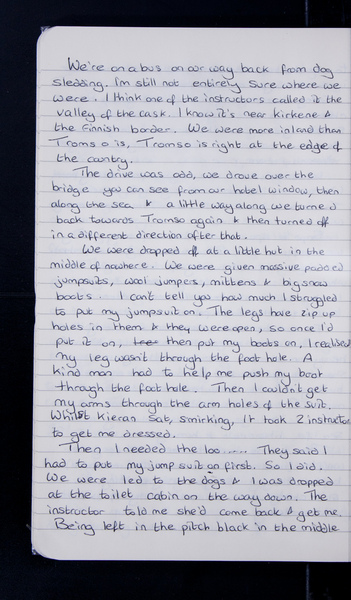 We're on a bus on our way back from dog
sledding. I'm still not entirely sure where we
were. I think one of the instructors called it the
valley of the cask. I know it's near Kirkene &
the Finnish border. We were more inland than
Tromso is, Tromso is right at the edge of
the country.
The drive was odd, we drove over the
bridge you can see from our hotel window, then
along the sea & a little way along we turned
back towards Tromso again & then turned off
in a different direction after that.
We were dropped off at a little hut in the
middle of nowhere. We were given massive padded
jumpsuits, wool jumpers, mittens & big snow
boots. I can't tell you how much I struggled
to put my jumpsuit on. The legs have zip up
holes in them & they were open, so once I'd
put it on, then put my boots on, I realised
my leg wasn't through the foot hole. A
kind man had to help me push my boot
through the foot hole. Then I couldn't get
my arms through the arm holes of the suit.
Whilst Kieran sat, smirking, it took 2 instructor
to get me dressed.
Then I needed the loo...... They said I
had to put my jump suit on first. So I did.
We were led to the dogs & I was dropped
at the toilet cabin on the way down. The
instructor told me she'd come back & get me.
Being left in the pitch black in the middle